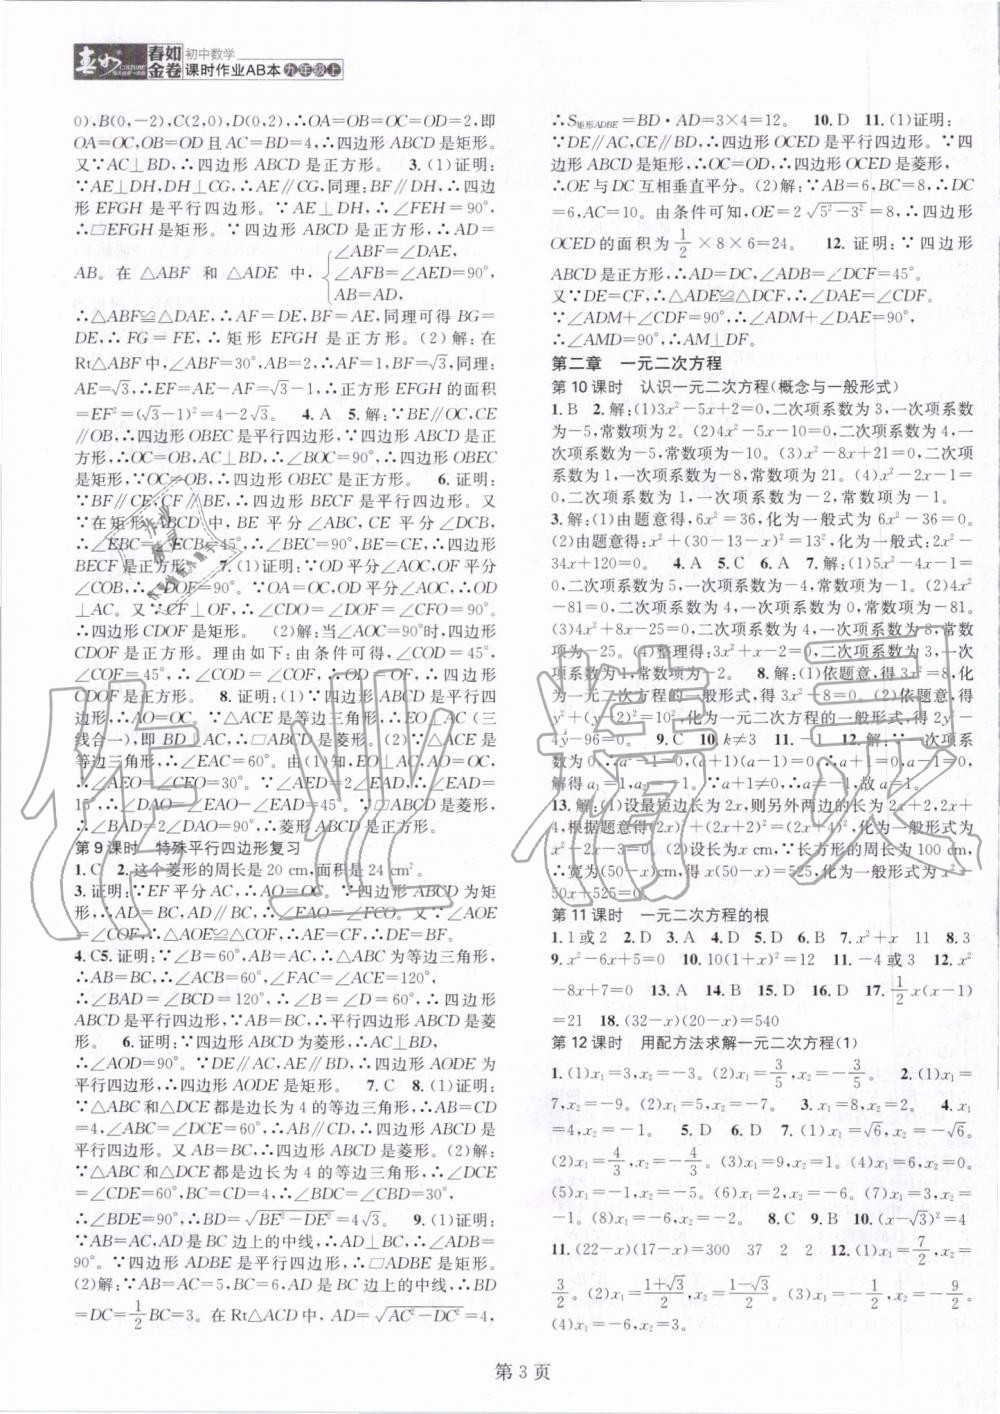 春如金卷 初中数学
课时作业AB本 九年级上
0),B(0,-2),C(2,0),D(0,2),∴OA=OB=OC=OD=2,即
OA=OC,OB=OD且AC=BD=4,∴四边形ABCD是矩形。
又∵AC⊥BD,∴四边形ABCD是正方形。 3.(1)证明:
∵AE⊥DH,DH⊥CG,∴AE∥CG,同理:BF∥DH,∴四边
形EFGH是平行四边形。∵AE⊥DH,∴∠FEH=90°,
∴□EFGH是矩形。∵四边形ABCD是正方形,∴AD=
AB。在△ABF 和 △ADE 中,{∠ABF=∠DAE,
∠AFB=∠AED=90°,
AB=AD,
∴△ABF≌△DAE,∴AF=DE,BF=AE,同理可得BG=
DE,∴FG=FE,∴矩形EFGH是正方形。(2)解:在
Rt△ABF中,∠ABF=30°,AB=2,∴AF=1,BF=√3,同理:
AE=√3,∴EF=AE-AF=√3-1,∴正方形EFGH的面积
=EF²=(√3-1)²=4-2√3。 4.A 5.解:∵BE∥OC,CE
∥OB,∴四边形OBEC是平行四边形。∵四边形ABCD是正方
形,∴OC=OB,AC⊥BD,∴∠BOC=90°,∴四边形OBEC
是矩形,∵OC=OB,∴四边形OBEC是正方形。 6.证明:
∵BF∥CE,CF∥BE,∴四边形BECF是平行四边形。又
∵在矩形ABCD中,BE平分∠ABC,CE平分∠DCB,
∴∠EBC=∠ECB=45°,∴∠BEC=90°,BE=CE,∴四边形
BECF是正方形。 7.(1)证明:∵OD平分∠AOC,OF平分
∠COB,∴∠DOF=90°。∵OA=OC,OD平分∠AOC,∴OD
⊥AC。又∵CF⊥OF,∴∠CDO=∠DOF=∠CFO=90°。
∴四边形CDOF是矩形。 (2)解:当∠AOC=90°时,四边形
CDOF是正方形。理由如下:由条件可得,∠COD=45°,
∠COF=45°,∴∠COD=∠COF,∴OD=OF,∴四边形
CDOF是正方形。 8.证明:(1)∵四边形ABCD是平行四
边形,∴AO=OC。∵△ACE是等边三角形,∴EO⊥AC(三
线合一),即BD⊥AC,∴□ABCD是菱形。(2)∵△ACE是
等边三角形,∴∠EAC=60°。由(1)知,EO⊥AC,AO=OC,
∴∠AEO=∠OEC=30°。∵∠AED=2∠EAD,∴∠EAD=
15°,∴∠DAO=∠EAO-∠EAD=45°。∵□ABCD是菱形,
∴∠BAD=2∠DAO=90°,∴菱形ABCD是正方形。
第9课时 特殊平行四边形复习
1.C 2.这个菱形的周长是20 cm,面积是24 cm²。
3.证明:∵EF平分AC,∴AO=OC。∵四边形ABCD为矩
形,∴AD=BC,AD∥BC,∴∠EAO=∠FCO。又∵∠AOE
=∠COF,∴△AOE≌△COF,∴AE=CF,∴DE=BF。
4.C5.证明:∵∠B=60°,AB=AC,∴△ABC为等边三角形,
∴AB=BC,∴∠ACB=60°,∠FAC=∠ACE=120°,
∴∠BAD=∠BCD=120°,∴∠B=∠D=60°,∴四边形
ABCD是平行四边形,∵AB=BC,∴平行四边形ABCD是菱
形。 6.证明:∵四边形ABCD为菱形,∴AC⊥BD,
∴∠AOD=90°。∵DE∥AC,AE∥BD,∴四边形AODE为
平行四边形,∴四边形AODE是矩形。 7.C 8.(1)证明:
∵△ABC和△DCE都是边长为4的等边三角形,∴AB=CD
=4,∠ABC=∠DCE,∴AB∥CD,∴四边形ABCD是平行
四边形,∵AB=BC,∴四边形ABCD是菱形。(2)解:
∵△ABC和△DCE都是边长为4的等边三角形,∴∠DCE
=∠CDE=60°,BC=CD=4,∴∠BDC=∠CBD=30°,
∴∠BDE=90°,∴BD=√(BE²-DE²)=4√3。 9.(1)证明:
∵AB=AC,AD是BC边上的中线,∴AD⊥BC,∴∠ADB=
90°。∵四边形ADBE是平行四边形,∴□ADBE是矩形。
(2)解:∵AB=AC=5,BC=6,AD是BC边上的中线,∴BD
=DC=1/2BC=3。在Rt△ACD中,AD=√(AC²-DC²)=4,
∴S矩形ADBE=BD·AD=3×4=12。 10.D 11.(1)证明:
∵DE∥AC,CE∥BD,∴四边形OCED是平行四边形。∵四
边形ABCD是矩形,∴OC=OD,∴四边形OCED是菱形,
∴OE与DC互相垂直平分。(2)解:∵AB=6,BC=8,∴DC
=6,AC=10。由条件可知,OE=2√(5²-3²)=8,∴四边形
OCED的面积为1/2×8×6=24。 12.证明:∵四边形
ABCD是正方形,∴AD=DC,∠ADB=∠DCF=45°。
又∵DE=CF,∴△ADE≌△DCF,∴∠DAE=∠CDF。
∵∠ADM+∠CDF=90°,∴∠ADM+∠DAE=90°,
∴∠AMD=90°,∴AM⊥DF。
第二章 一元二次方程
第10课时 认识一元二次方程(概念与一般形式)
1.B 2.解:(1)3x²-5x+2=0,二次项系数为3,一次项系
数为-5,常数项为2。(2)4x²-x-10=0,二次项系数为4,一
次项系数为-1,常数项为-10。(3)x²-8x+21=0,二次项
系数为1,一次项系数为-8,常数项为21。(4)x²-2x-1=
0,二次项系数为1,一次项系数为-2,常数项为-1。
3.解:(1)由题意得,6x²=36,化为一般式为6x²-36=0。
(2)由题意得:x²+(30-13-x)²=13²,化为一般形式为:x²-
34x+120=0。 4.A 5.C 6.A 7.解:(1)5x²-4x-1=
0,二次项系数为5,一次项系数为-4,常数项为-1。(2)4x²
-81=0,二次项系数为4,一次项系数为0,常数项为-81。
(3)4x²+8x-25=0,二次项系数为4,一次项系数为8,常数项
为-25。(4)整理得:3x²-7x-2=0,二次项系数为3,一次
项系数为-7,常数项为-2。 8.解:(1)依题意,得3x²=8,
化为一元二次方程的一般形式,得3x²-8=0。(2)依题意,得
y²+(y-2)²=10²,化为一元二次方程的一般形式,得2y²-
4y-96=0。 9.C 10.k≠3 11.-1 12.解:∵一次项系
数为0,∴a²-1=0,∴(a+1)(a-1)=0,∴a-1=0,a+1=0,
解得a₁=1,a₂=-1。∵a+1≠0,∴a≠-1,故a=1。
13.解:(1)设最短边长为2x,则另外两边的长为2x+2,2x+
4,根据题意得(2x)²+(2x+2)²=(2x+4)²,化为一般形式为
x²-2x-3=0。(2)设长为x cm,∵长方形的周长为100 cm,
∴宽为(50-x)cm,得x(50-x)=525,化为一般形式为x²-
50x+525=0。
第11课时 一元二次方程的根
1.1或2 2.D 3.A 4.D 5.D 6.B 7.x²+x 11 8.3
9.x²-6x+5=0 10.10(1+x)²=12 11.-4或3 12.x²
-8x+7=0 13.A 14.D 15.A 16.D 17.1/2x(x-1)
=21 18.(32-x)(20-x)=540
第12课时 用配方法求解一元二次方程(1)
1.(1)x₁=3,x₂=-3。(2)x₁=3/5,x₂=-3/5。 2.(1)x₁=
7,x₂=-9。(2)x₁=5,x₂=-7。 3.x₁=8,x₂=2。 4.x₁
=4,x₂=-1。 5.D 6.D 7.(1)x₁=√6,x₂=-√6。
(2)x₁=4/3,x₂=-4/3。(3)x₁=9,x₂=-1。(4)x₁=6,x₂=0。
(5)x₁=-1,x₂=-5。(6)x₁=2,x₂=-6。(7)x₁=3,x₂=
-1。(8)x₁=-6,x₂=-2。 8.C 9.B 10.(x-√3)²=4
11.(22-x)(17-x)=300 37 2 2 12.(1)x₁=7/2,x₂=
3/2。(2)x₁=(1+√3)/2,x₂=(1-√3)/2。(3)x₁=-1/2,x₂=-9/2。
(4)x₁=-6,x₂=3。
第3页
作业精灵